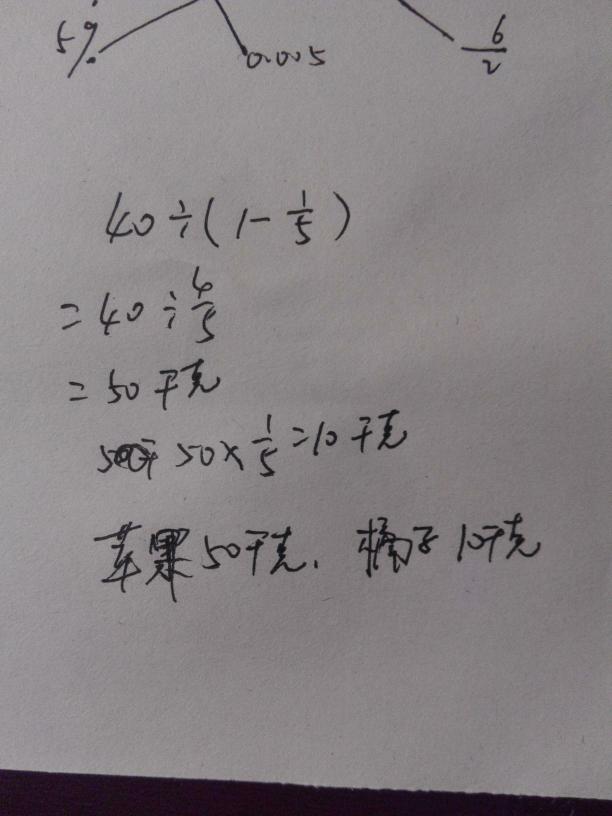 5% 0.005 6/2
40÷(1-1/5)
=40÷4/5
=50千克
50×1/5=10千克
苹果50千克. 橘子10千克